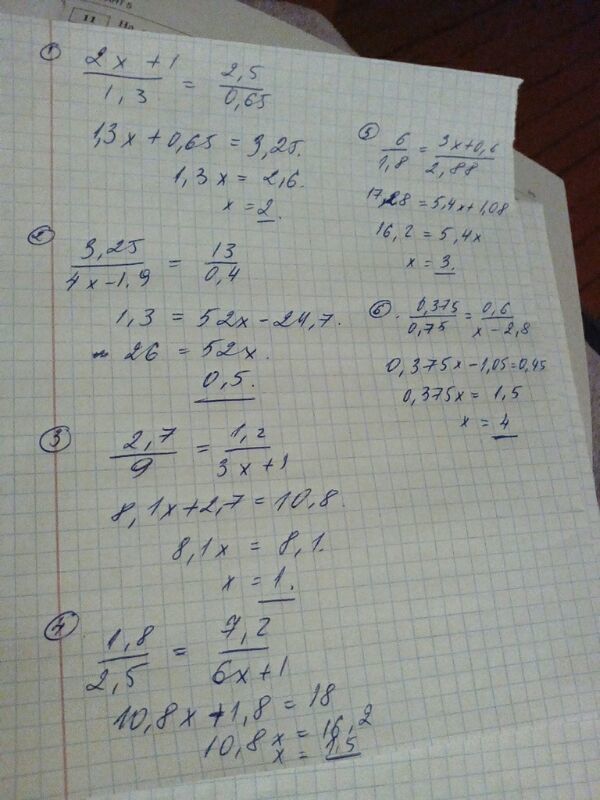 ① (2x+1)/1,3 = 2,5/0,65
1,3x+0,65 = 3,25.
1,3x = 2,6.
x = 2.
② 3,25/(4x-1,9) = 13/0,4
1,3 = 52x-24,7.
26 = 52x.
0,5.
③ 2,7/9 = 1,2/(3x+1)
8,1x+2,7=10,8.
8,1x = 8,1.
x = 1.
④ 1,8/2,5 = 7,2/(6x+1)
10,8x+1,8=18
10,8x = 16,2
x = 1,5
⑤ 6/1,8 = (3x+0,6)/2,88
17,28 = 5,4x+1,08
16,2 = 5,4x
x = 3.
⑥ 0,375/0,75 = 0,6/(x-2,8)
0,375x-1,05=0,45
0,375x = 1,5
x = 4